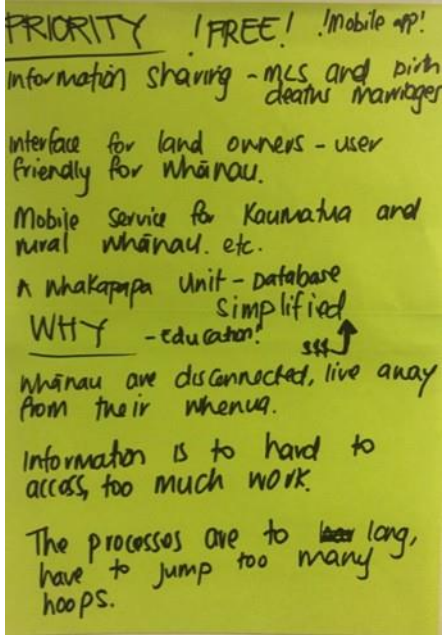 PRIORITY !FREE! !Mobile app!
information sharing - MLS and Birth
deaths marriages
interface for land owners - user
friendly for whānau.
Mobile service for Kaumatua and
rural whānau. etc.
A Whakapapa Unit - Database
Simplified
WHY - Education!
$$$
Whānau are disconnected, live away
from their whenua.
Information is to hard to
access, too much work.
The processes are to long,
have to jump too many
hoops.